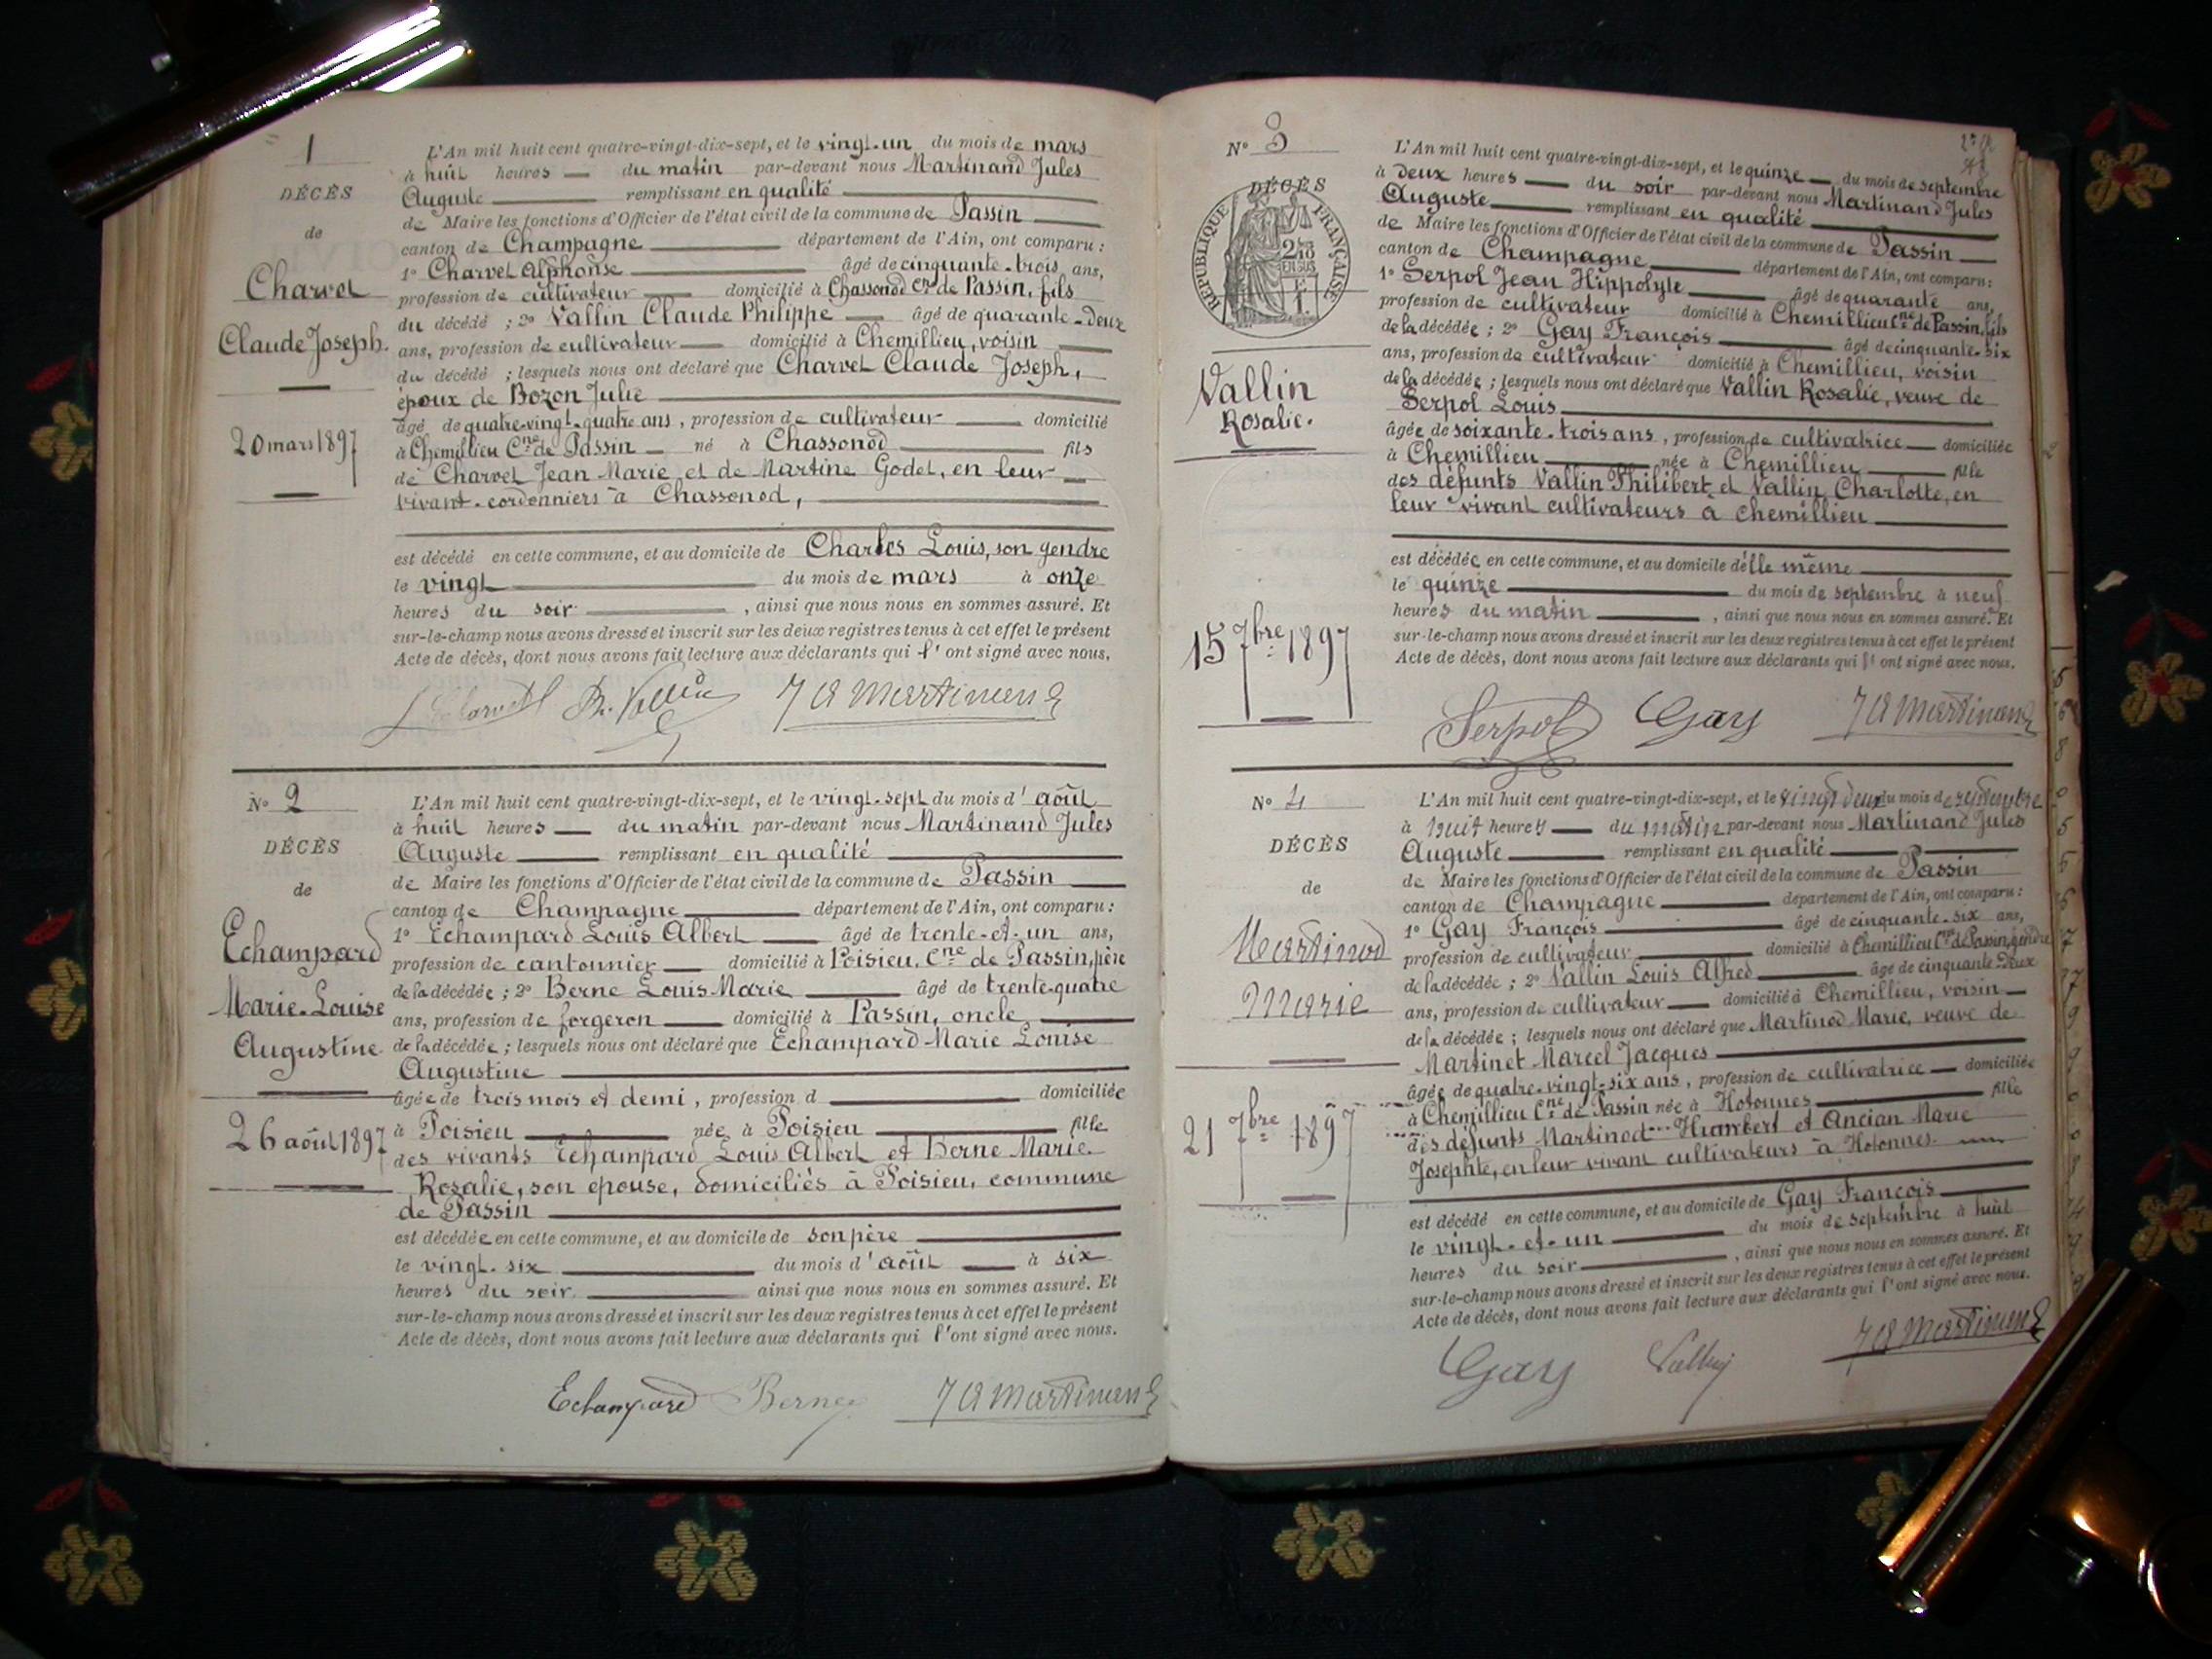 1
DÉCÈS
de
Charvet
Claude Joseph.
20 mars 1897
L'An mil huit cent quatre-vingt-dix-sept, et le vingt-un du mois de mars
à huit heures du matin par-devant nous Martinand Jules
Auguste remplissant en qualité
de Maire les fonctions d'Officier de l'état civil de la commune de Passin
canton de Champagne département de l'Ain, ont comparu :
1º Charvet Alphonse âgé de cinquante-trois ans,
profession de cultivateur domicilié à Chassonod Cne de Passin, fils
du décédé ; 2º Vallin Claude Philippe âgé de quarante-deux
ans, profession de cultivateur domicilié à Chemillieu, voisin
du décédé ; lesquels nous ont déclaré que Charvet Claude Joseph,
époux de Bozon Julie
âgé de quatre-vingt-quatre ans, profession de cultivateur domicilié
à Chemillieu Cne de Passin né à Chassonod fils
de Charvet Jean Marie et de Martine Godet, en leur
vivant cordonniers à Chassonod,
est décédé en cette commune, et au domicile de Charles Louis, son gendre
le vingt du mois de mars à onze
heures du soir , ainsi que nous nous en sommes assuré. Et
sur-le-champ nous avons dressé et inscrit sur les deux registres tenus à cet effet le présent
Acte de décès, dont nous avons fait lecture aux déclarants qui l'ont signé avec nous.
J A Martinand
Nº 2
DÉCÈS
de
Echampard
Marie-Louise
Augustine
26 août 1897
L'An mil huit cent quatre-vingt-dix-sept, et le vingt-sept du mois d'août
à huit heures du matin par-devant nous Martinand Jules
Auguste remplissant en qualité
de Maire les fonctions d'Officier de l'état civil de la commune de Passin
canton de Champagne département de l'Ain, ont comparu :
1º Echampard Louis Albert âgé de trente-et-un ans,
profession de cantonnier domicilié à Poisieu, Cne de Passin, père
de la décédée ; 2º Berne Louis-Marie âgé de trente-quatre
ans, profession de forgeron domicilié à Passin, oncle
de la décédée ; lesquels nous ont déclaré que Echampard Marie Louise
Augustine
âgée de trois mois et demi, profession d domiciliée
à Poisieu née à Poisieu fille
des vivants Echampard Louis Albert et Berne Marie
Rosalie, son épouse, domiciliés à Poisieu, commune
de Passin
est décédée en cette commune, et au domicile de son père
le vingt-six du mois d'août à six
heures du soir ainsi que nous nous en sommes assuré. Et
sur-le-champ nous avons dressé et inscrit sur les deux registres tenus à cet effet le présent
Acte de décès, dont nous avons fait lecture aux déclarants qui l'ont signé avec nous.
Echampard Berne J A Martinand
Nº 3
DÉCÈS
RÉPUBLIQUE FRANÇAISE
Vallin
Rosalie.
15 7bre 1897
L'An mil huit cent quatre-vingt-dix-sept, et le quinze du mois de septembre
à deux heures du soir par-devant nous Martinand Jules
Auguste remplissant en qualité
de Maire les fonctions d'Officier de l'état civil de la commune de Passin
canton de Champagne département de l'Ain, ont comparu :
1º Serpol Jean Hippolyte âgé de quarante ans,
profession de cultivateur domicilié à Chemillieu Cne de Passin, fils
de la décédée ; 2º Gay François âgé de cinquante-six
ans, profession de cultivateur domicilié à Chemillieu, voisin
de la décédée ; lesquels nous ont déclaré que Vallin Rosalie, veuve de
Serpol Louis
âgée de soixante-trois ans, profession de cultivatrice domiciliée
à Chemillieu née à Chemillieu fille
des défunts Vallin Philibert et Vallin Charlotte, en
leur vivant cultivateurs à Chemillieu
est décédée en cette commune, et au domicile d'elle même
le quinze du mois de septembre à neuf
heures du matin , ainsi que nous nous en sommes assuré. Et
sur-le-champ nous avons dressé et inscrit sur les deux registres tenus à cet effet le présent
Acte de décès, dont nous avons fait lecture aux déclarants qui l'ont signé avec nous.
Serpol Gay J A Martinand
Nº 4
DÉCÈS
de
Martinod
Marie
21 7bre 1897
L'An mil huit cent quatre-vingt-dix-sept, et le vingt deux du mois de septembre
à huit heures du matin par-devant nous Martinand Jules
Auguste remplissant en qualité
de Maire les fonctions d'Officier de l'état civil de la commune de Passin
canton de Champagne département de l'Ain, ont comparu :
1º Gay François âgé de cinquante-six ans,
profession de cultivateur domicilié à Chemillieu Cne de Passin, gendre
de la décédée ; 2º Vallin Louis Alfred âgé de cinquante-deux
ans, profession de cultivateur domicilié à Chemillieu, voisin
de la décédée ; lesquels nous ont déclaré que Martinod Marie, veuve de
Martinet Marcel Jacques
âgée de quatre-vingt-six ans, profession de cultivatrice domiciliée
à Chemillieu Cne de Passin née à Hotonnes fille
des défunts Martinod Humbert et Ancian Marie
Josephte, en leur vivant cultivateurs à Hotonnes
est décédé en cette commune, et au domicile de Gay François
le vingt-et-un du mois de septembre à huit
heures du soir , ainsi que nous nous en sommes assuré. Et
sur-le-champ nous avons dressé et inscrit sur les deux registres tenus à cet effet le présent
Acte de décès, dont nous avons fait lecture aux déclarants qui l'ont signé avec nous.
Gay Vallin J A Martinand